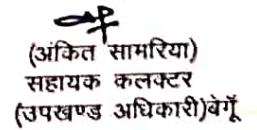 (अंकित सामरिया)
सहायक कलक्टर
(उपखण्ड अधिकारी)बेगूँ